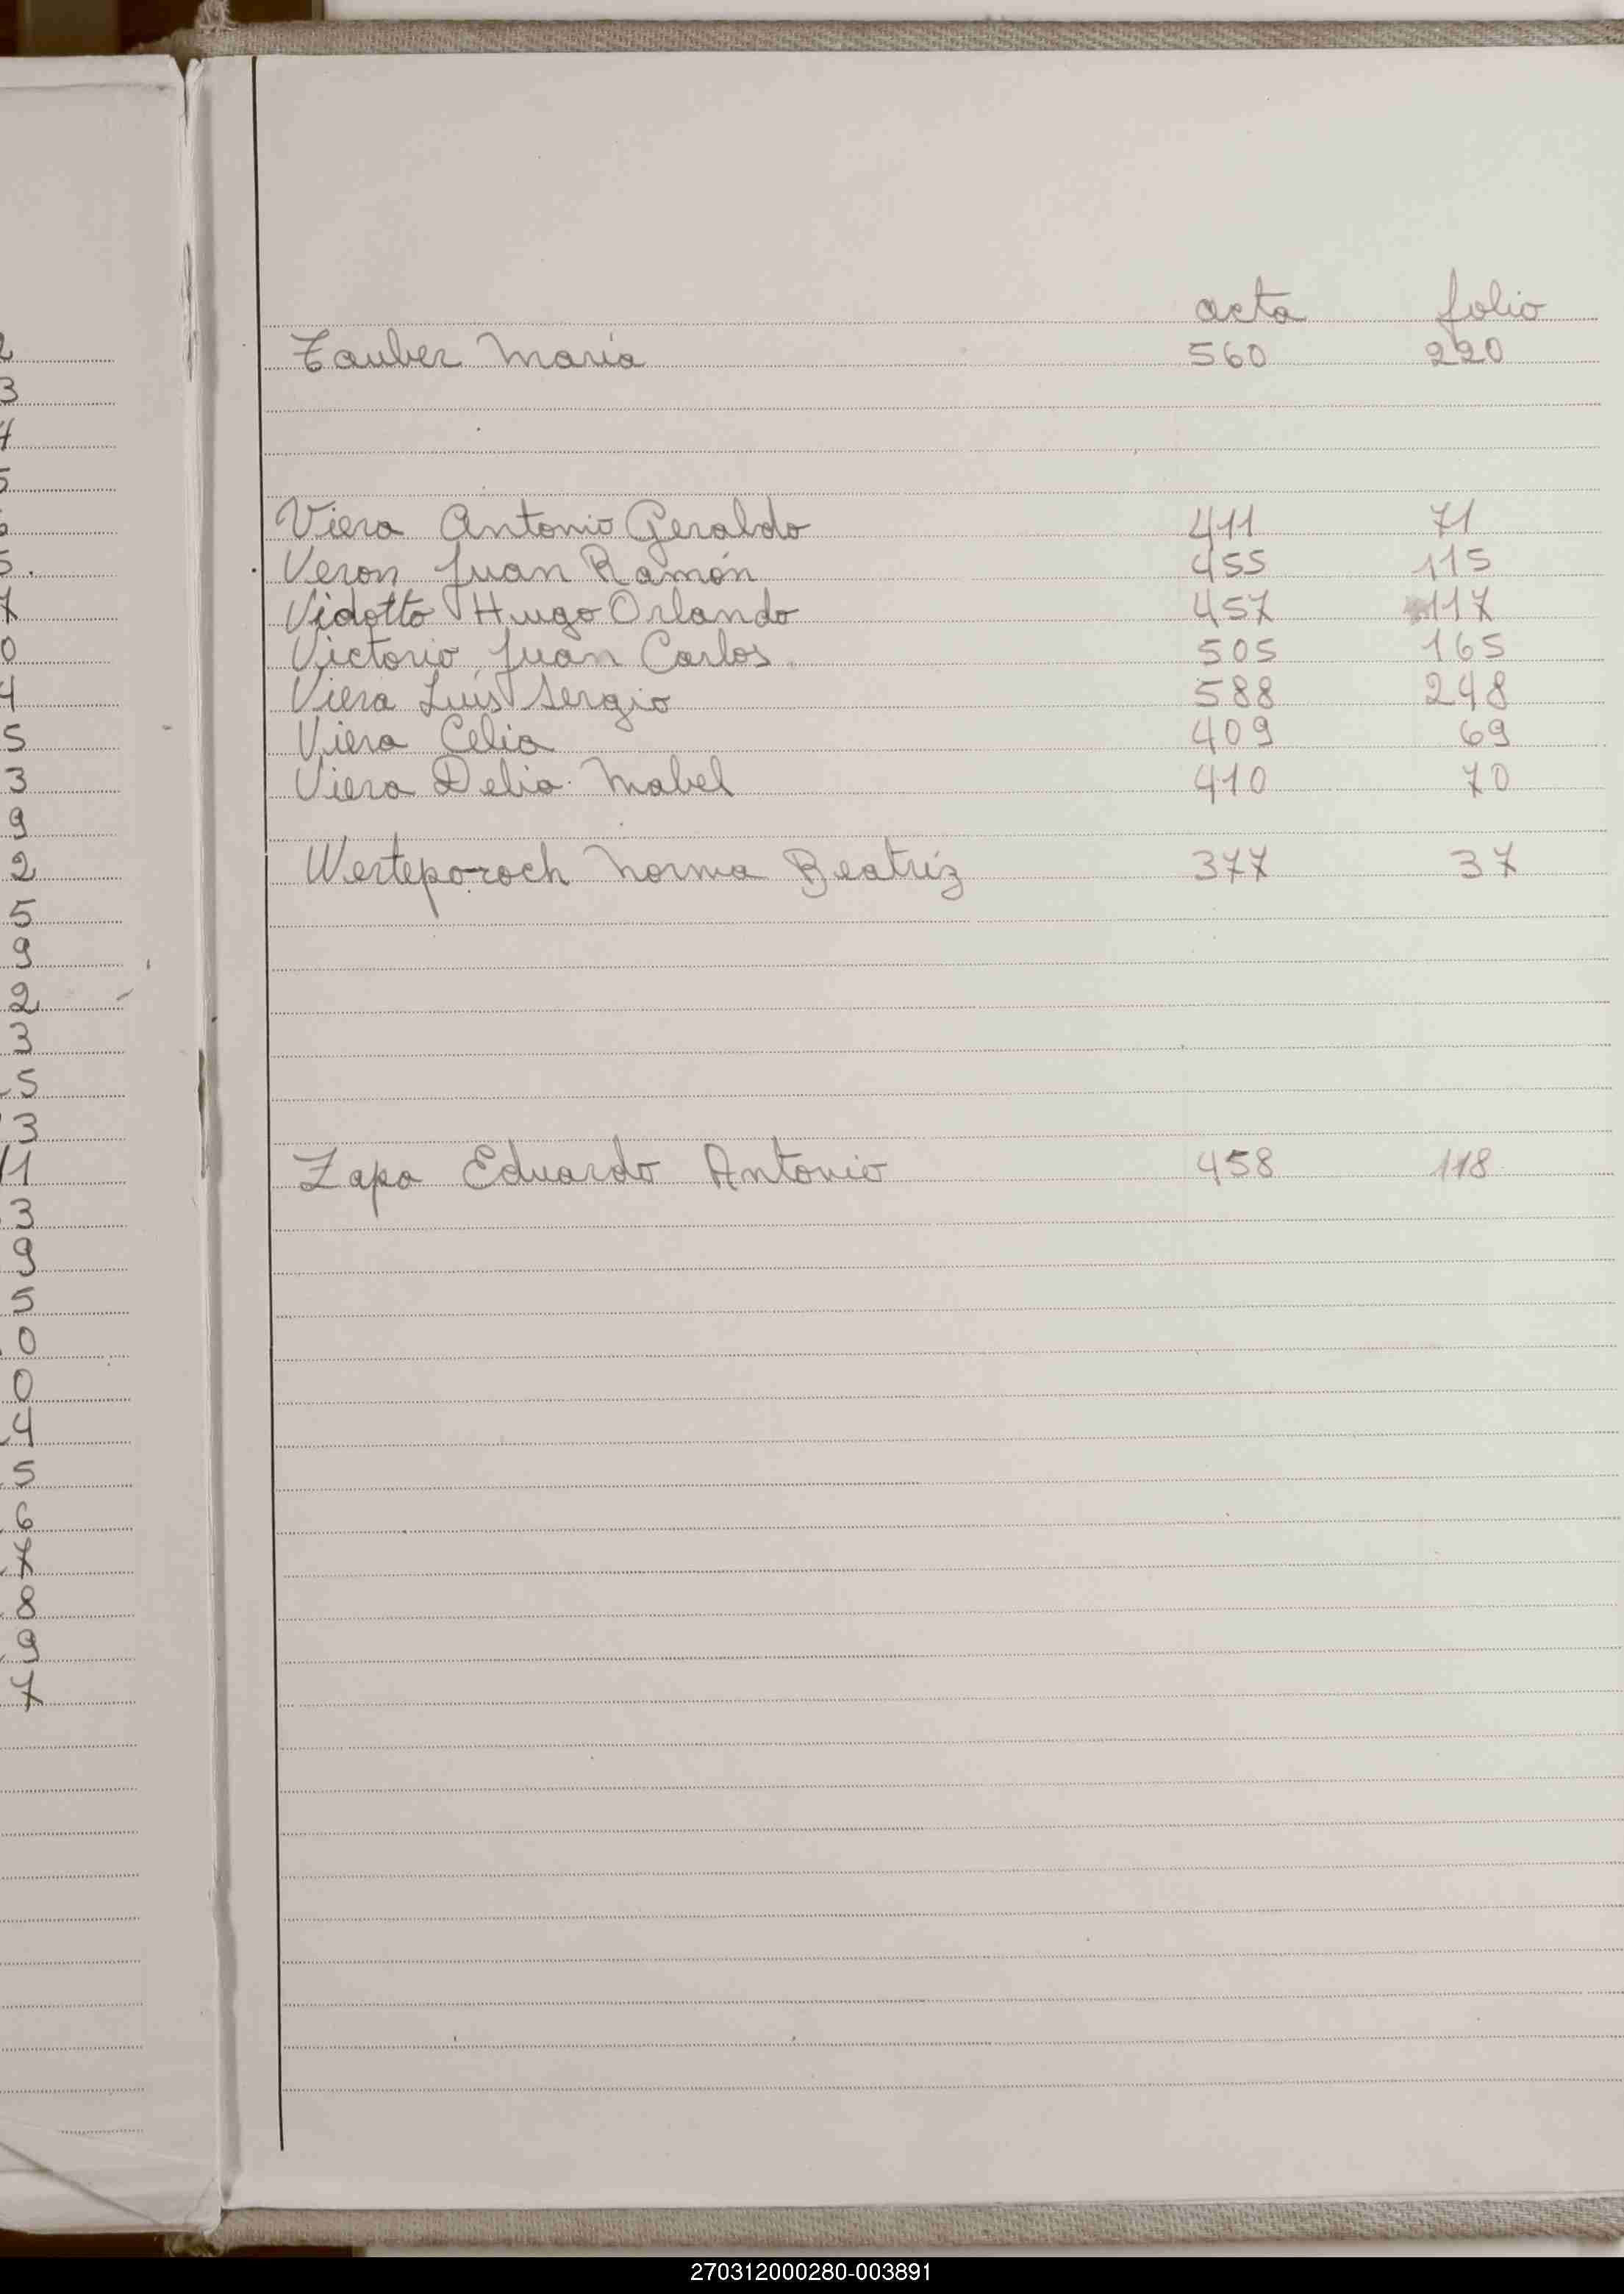 acta folio
Tauber María 560 220
Viera Antonio Geraldo 411 71
Veron Juan Ramón 455 115
Vidotto Hugo Orlando 457 117
Victorio Juan Carlos 505 165
Viera Luis Sergio 588 248
Viera Celia 409 69
Viera Delia Mabel 410 70
Werteporoch Norma Beatríz 377 37
Zapa Eduardo Antonio 458 118
270312000280-003891